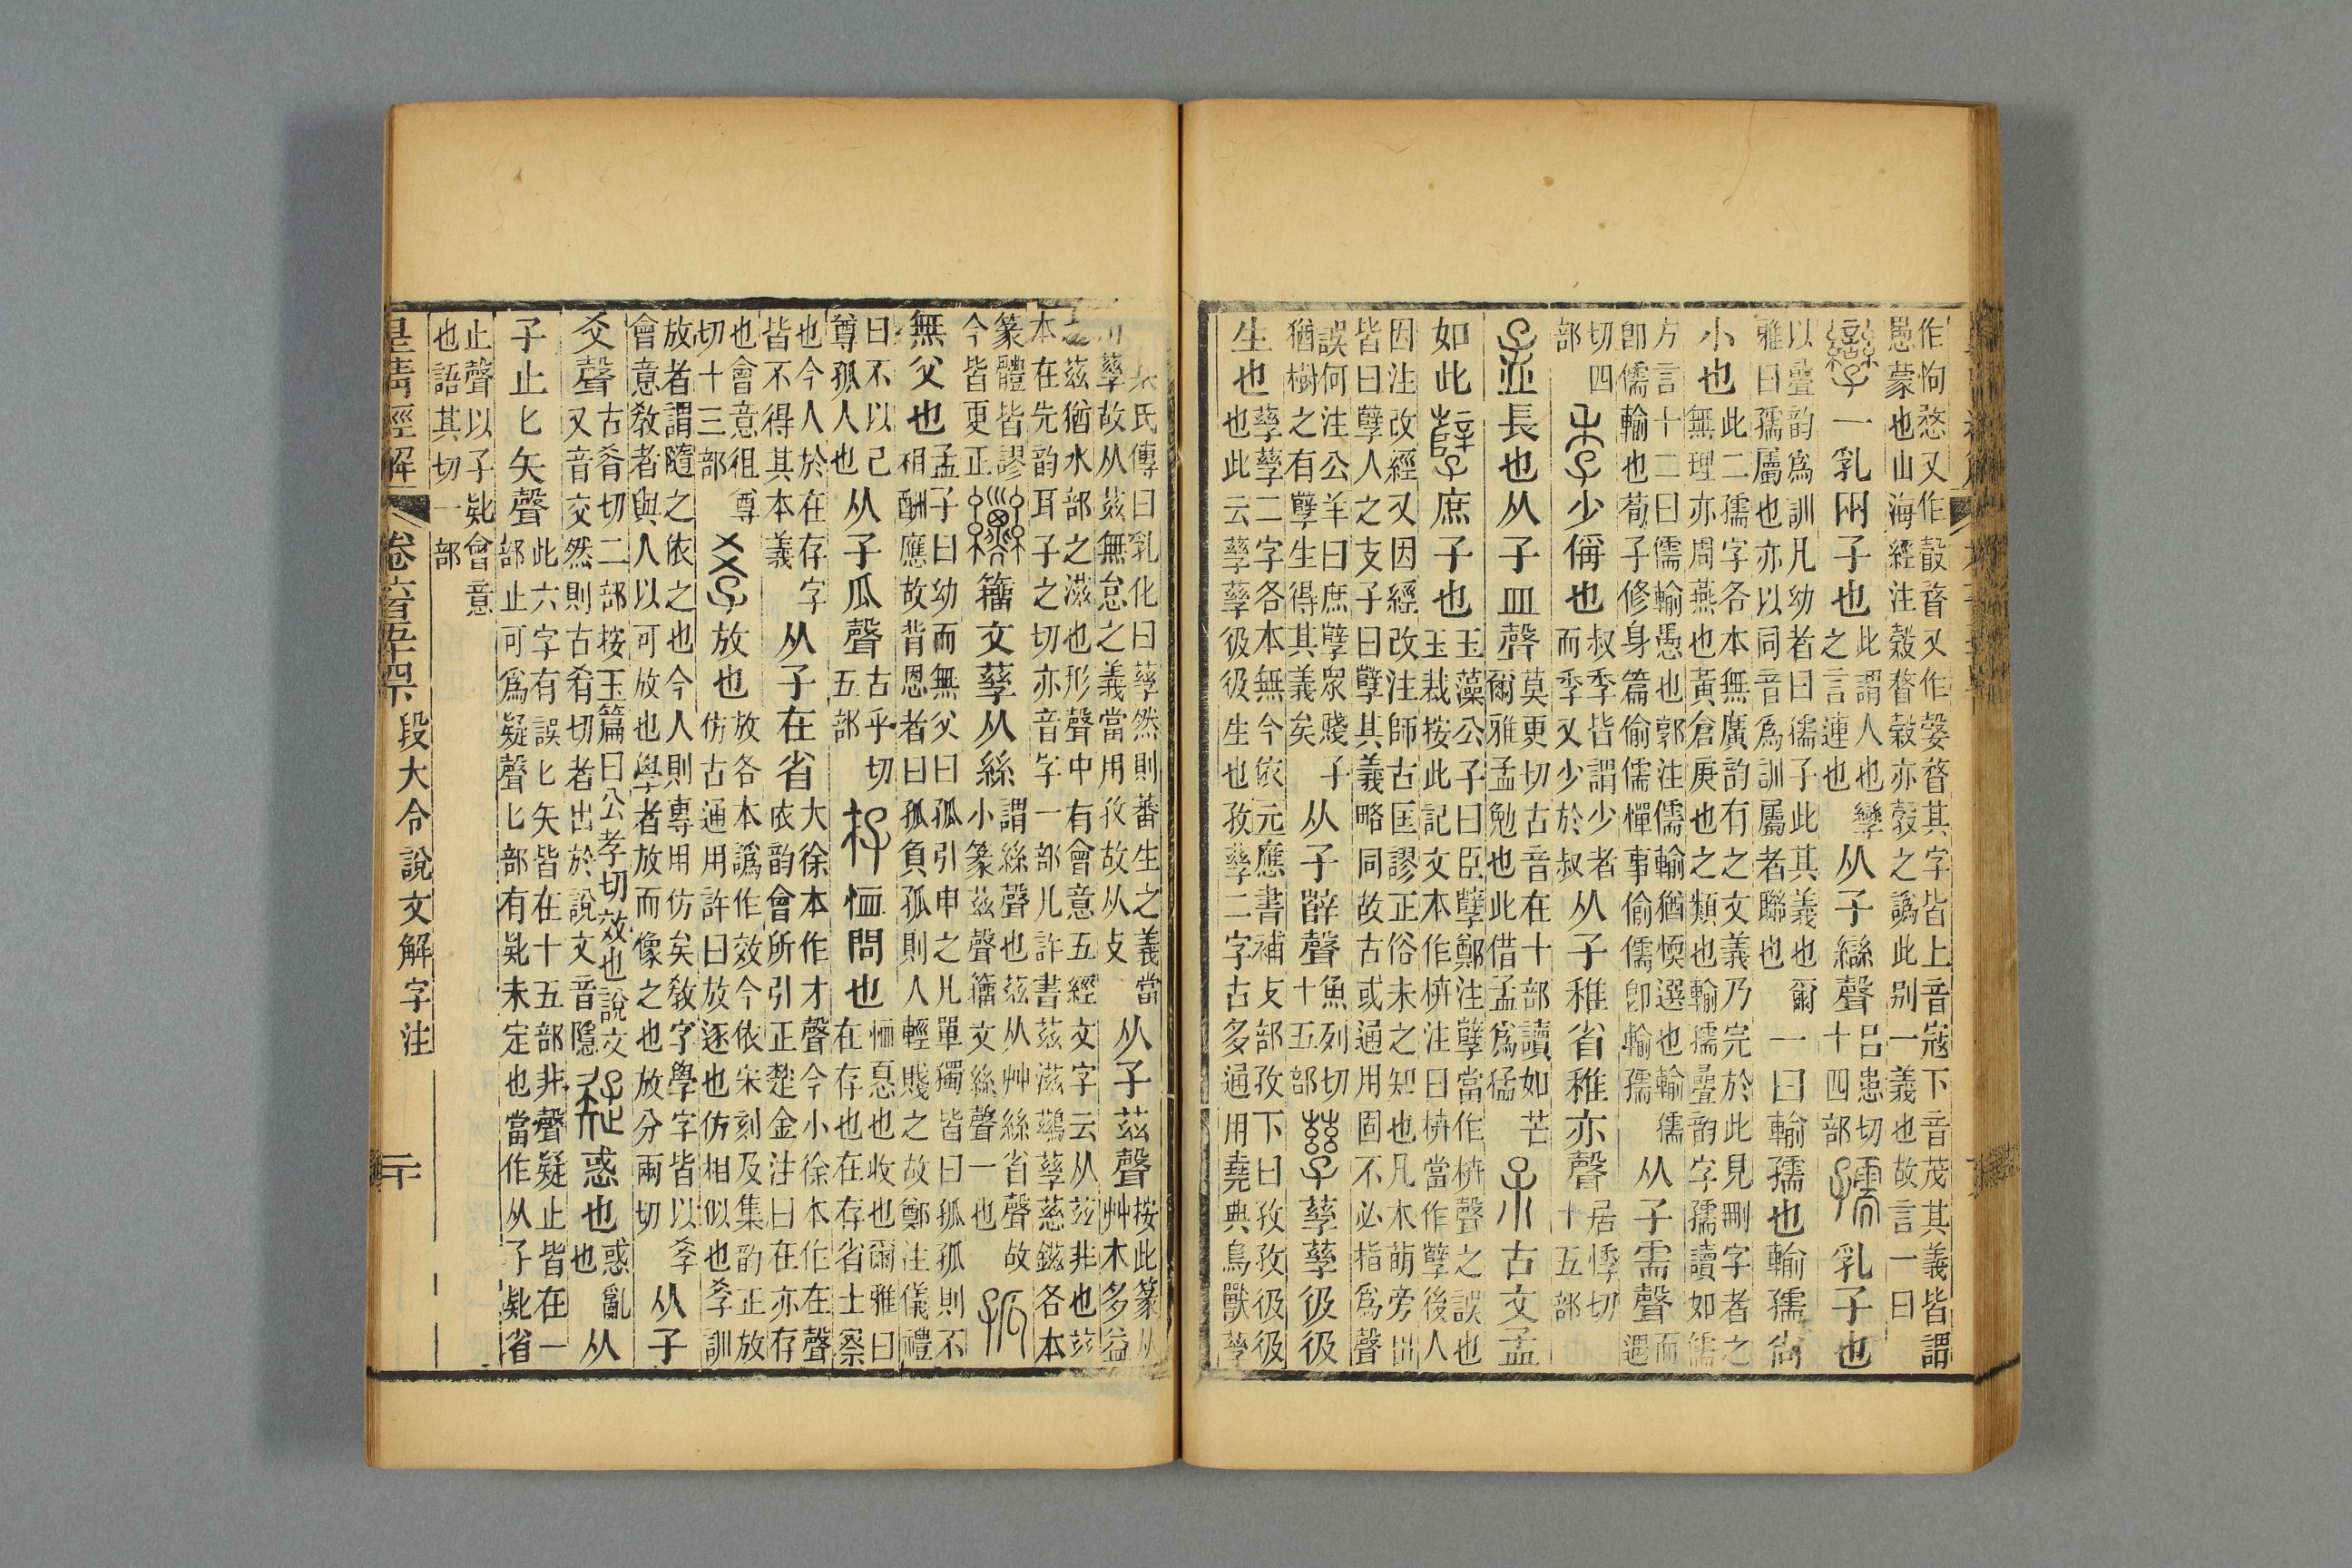 作怐愗又作㝅瞀又作婺瞀其字皆上音寇下音茂其義皆謂
愚蒙也山海經注㝅瞀㝅亦㝅之譌此别一義也故言一曰
孿一乳兩子也此謂人也孿之言連也从子䜌聲呂患切十四部孺乳子也
以疊韵爲訓凡幼者曰孺子此其義也爾雅曰孺屬也亦以同音爲訓屬者聯也一曰輸孺也輸孺尙
小也此二孺字各本無廣韵有之文義乃完於此見刪字者之無理亦周燕也黃倉庚也之類也輸孺疊韵字孺讀如儒
方言十二曰儒輸愚也郭注儒輸猶愞選也輸孺卽儒輸也荀子修身篇偷儒憚事偷儒卽輸孺从子需聲而遇
切四部季少偁也叔季皆謂少者而季又少於叔从子稚省稚亦聲居悸切十五部
孟長也从子皿聲莫更切古音在十部讀如芒爾雅孟勉也此借孟爲猛𥁄古文孟
如此孽庶子也玉藻公子曰臣孽鄭注孽當作枿聲之誤也玉裁按此記文本作枿注曰枿當作孽後人
因注改經又因經改注師古匡謬正俗未之知也凡木萌旁出皆曰孽人之支子曰孽其義略同故古或通用固不必指爲聲
誤何注公羊曰庶孽眾賤子猶樹之有孽生得其義矣从子辥聲魚列切十五部孳孳孳彶彶
生也孳孳二字各本無今依元應書補攴部孜下曰孜孜彶彶也此云孳孳彶彶生也孜孳二字古多通用堯典鳥獸孳
某氏傳曰乳化曰孳然則蕃生之義當用孳故从茲無怠之義當用孜故从攴从子茲聲按此篆从艸木多益
之茲猶水部之滋也形聲中有會意五經文字云从玆非也玆本在先韵耳子之切亦音字一部凡許書茲滋鷀孳慈鎡各本
篆體皆謬今皆更正籒文孳从絲謂絲聲也茲从艸絲省聲故小篆茲聲籒文絲聲一也孤
無父也孟子曰幼而無父曰孤引申之凡單獨皆曰孤孤則不相酬應故背恩者曰孤負孤則人輕賤之故鄭注儀禮
曰不以己尊孤人也从子瓜聲古乎切五部存恤問也恤惪也收也爾雅曰在存也在存省士察
也今人於在存字皆不得其本義从子在省大徐本作才聲今小徐本作在聲依韵會所引正楚金注曰在亦存
也會意徂尊切十三部孝放也放各本譌作效今依宋刻及集韵正放仿古通用許曰放逐也仿相似也孝訓
放者謂隨之依之也今人則專用仿矣敎字學字皆以孝會意敎者與人以可放也學者放而像之也放分兩切从子
爻聲古肴切二部按玉篇曰公孝切效也說文又音交然則古肴切者出於說文音隱疑惑也惑亂也从
子止匕矢聲此六字有誤匕矢皆在十五部非聲疑止皆在一部止可爲疑聲匕部有𣅀未定也當作从子𣅀省
止聲以子𣅀會意也語其切一部
皇清經解 卷六百五十四 段大令說文解字注 二十